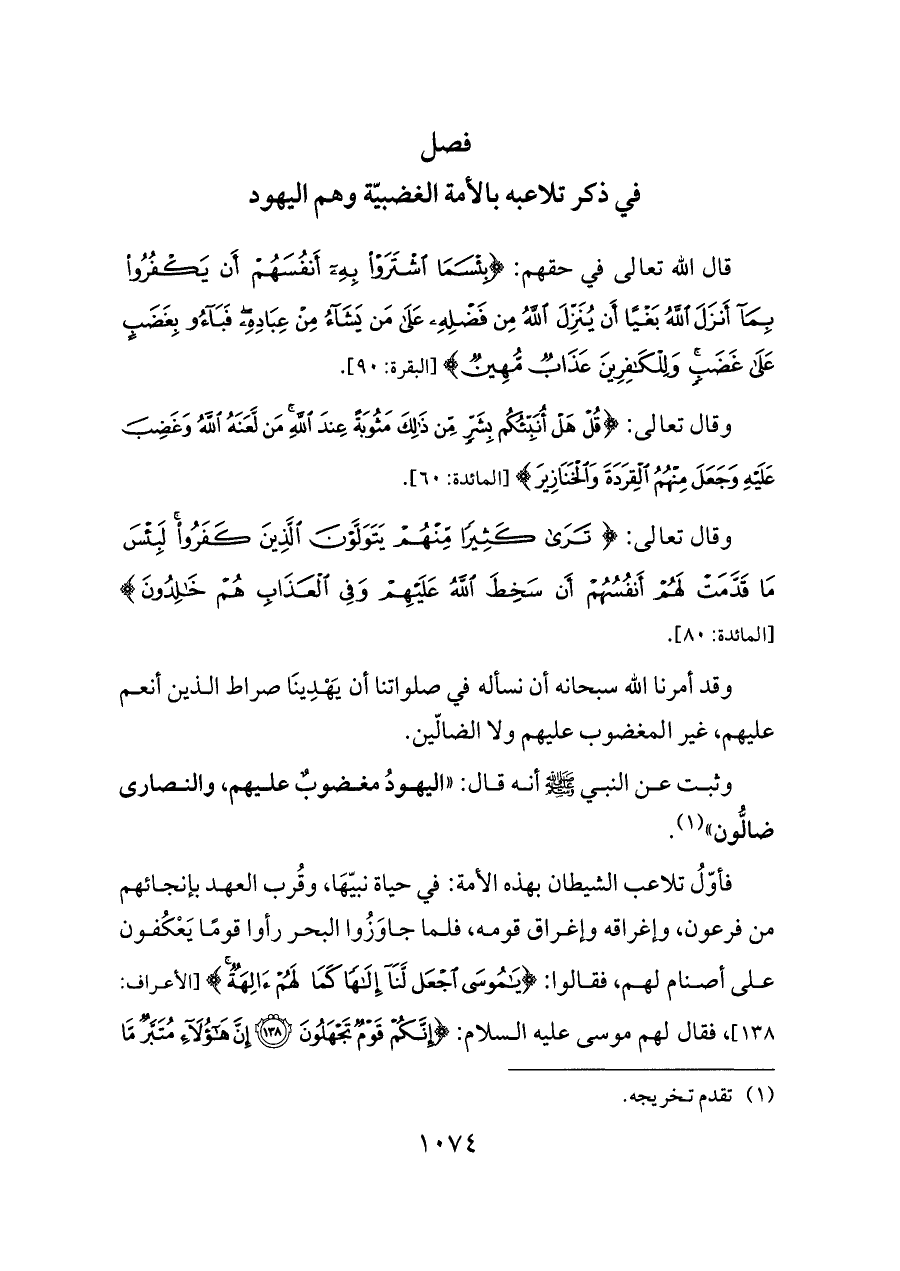 فصل
في ذكر تلاعبه بالأمة الغضبيّة وهم اليهود
قال الله تعالى في حقهم: ﴿بِئْسَمَا ٱشْتَرَوْا۟ بِهِۦٓ أَنفُسَهُمْ أَن يَكْفُرُوا۟
بِمَآ أَنزَلَ ٱللَّهُ بَغْيًا أَن يُنَزِّلَ ٱللَّهُ مِن فَضْلِهِۦ عَلَىٰ مَن يَشَآءُ مِنْ عِبَادِهِۦۖ فَبَآءُو بِغَضَبٍ
عَلَىٰ غَضَبٍۚ وَلِلْكَٰفِرِينَ عَذَابٌ مُّهِينٌ﴾ [البقرة: ٩٠].
وقال تعالى: ﴿قُلْ هَلْ أُنَبِّئُكُم بِشَرٍّ مِّن ذَٰلِكَ مَثُوبَةً عِندَ ٱللَّهِۚ مَن لَّعَنَهُ ٱللَّهُ وَغَضِبَ
عَلَيْهِ وَجَعَلَ مِنْهُمُ ٱلْقِرَدَةَ وَٱلْخَنَازِيرَ﴾ [المائدة: ٦٠].
وقال تعالى: ﴿تَرَىٰ كَثِيرًا مِّنْهُمْ يَتَوَلَّوْنَ ٱلَّذِينَ كَفَرُوا۟ۚ لَبِئْسَ
مَا قَدَّمَتْ لَهُمْ أَنفُسُهُمْ أَن سَخِطَ ٱللَّهُ عَلَيْهِمْ وَفِى ٱلْعَذَابِ هُمْ خَٰلِدُونَ﴾
[المائدة: ٨٠].
وقد أمرنا الله سبحانه أن نسأله في صلواتنا أن يَهْدِينَا صراط الذين أنعم
عليهم، غير المغضوب عليهم ولا الضالّين.
وثبت عن النبي ﷺ أنه قال: «اليهودُ مغضوبٌ عليهم، والنصارى
ضالُّون»(١).
فأوّلُ تلاعب الشيطان بهذه الأمة: في حياة نبيّهَا، وقُرب العهد بإنجائهم
من فرعون، وإغراقه وإغراق قومه، فلما جاوَزُوا البحر رأوا قومًا يَعْكُفون
على أصنام لهم، فقالوا: ﴿يَٰمُوسَى ٱجْعَل لَّنَآ إِلَٰهًا كَمَا لَهُمْ ءَالِهَةٌۚ﴾ [الأعراف:
١٣٨]، فقال لهم موسى عليه السلام: ﴿إِنَّكُمْ قَوْمٌ تَجْهَلُونَ ١٣٨ إِنَّ هَٰٓؤُلَآءِ مُتَبَّرٌ مَّا
(١) تقدم تخريجه.
١٠٧٤